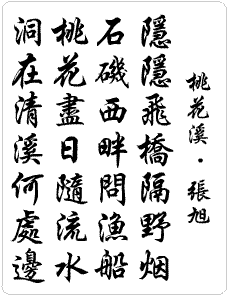 桃花溪·張旭
隱隱飛橋隔野烟
石磯西畔問漁船
桃花盡日隨流水
洞在清溪何處邊